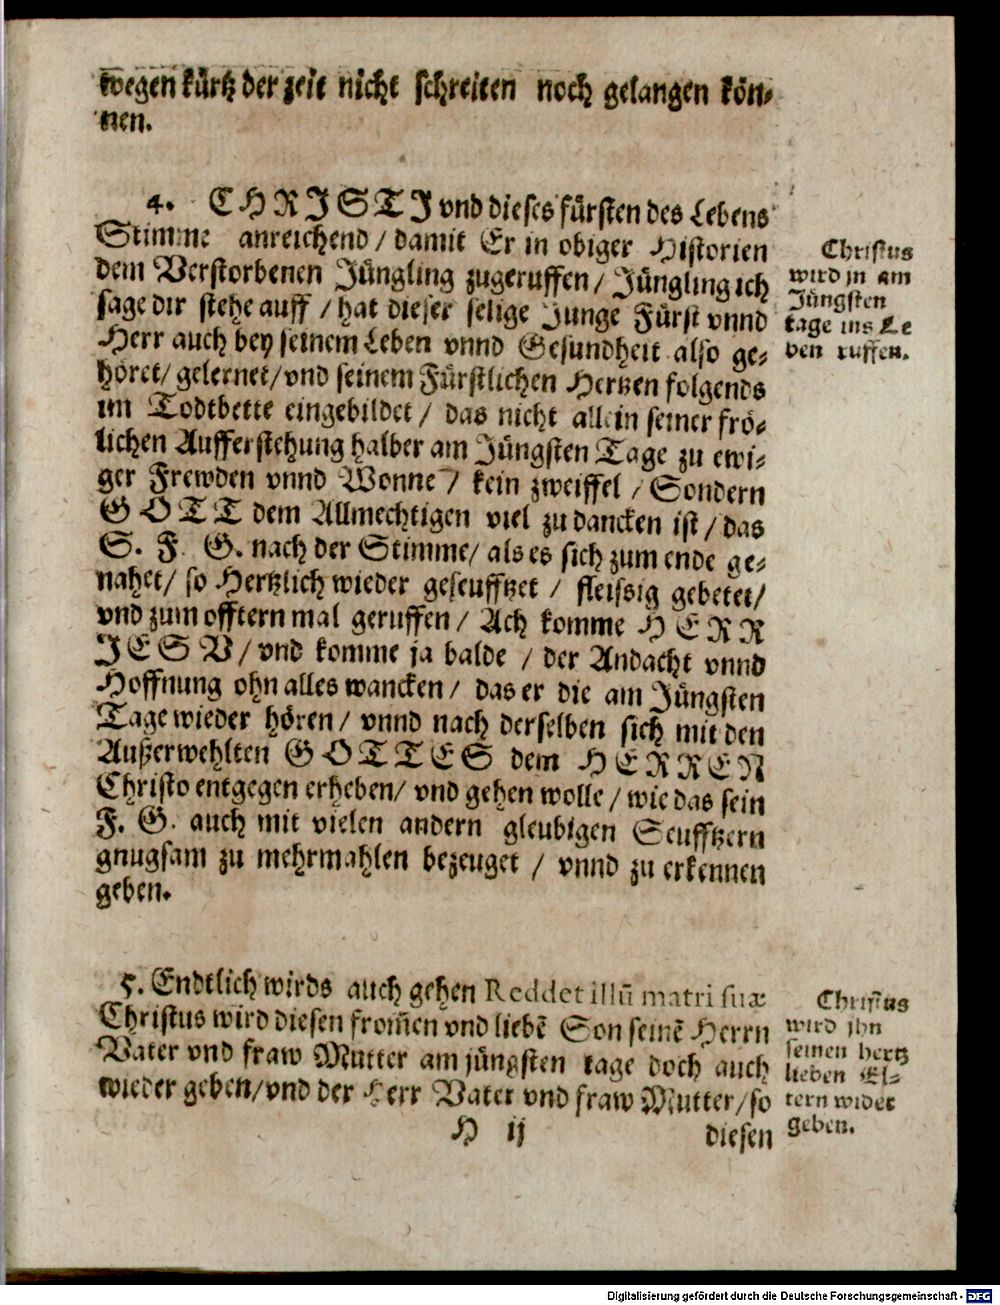 wegen kürtz der zeit nicht schreiten noch gelangen kön-
nen.
4. CHRISTI vnd dieses fürsten des Lebens
Stimme anreichend / damit Er in obiger Historien
dem Verstorbenen Jüngling zugeruffen / Jüngling ich
sage dir stehe auff / hat dieser selige Junge Fürst vnnd
Herr auch bey seinem Leben vnnd Gesundheit also ge-
höret / gelernet / vnd seinem Fürstlichen Hertzen folgends
im Todtbette eingebildet / das nicht allein seiner frö-
lichen Aufferstehung halber am Jüngsten Tage zu ewi-
ger Frewden vnnd Wonne / kein zweiffel / Sondern
GOTT dem Allmechtigen viel zu dancken ist / das
S. F. G. nach der Stimme / als es sich zum ende ge-
nahet / so Hertzlich wieder geseufftzet / fleissig gebetet /
vnd zum offtern mal geruffen / Ach komme HERR
JESV / vnd komme ja balde / der Andacht vnnd
Hoffnung ohn alles wancken / das er die am Jüngsten
Tage wieder hören / vnnd nach derselben sich mit den
Außerwehlten GOTTES dem HERREN
Christo entgegen erheben / vnd gehen wolle / wie das sein
F. G. auch mit vielen andern gleubigen Seufftzern
gnugsam zu mehrmahlen bezeuget / vnnd zu erkennen
geben.
Christus
wird jn am
Jüngsten
tage ins Le
ben ruffen.
5. Endtlich wirds auch gehen Reddet illū matri suæ
Christus wird diesen from̄en vnd liebē Son seinē Herrn
Vater vnd fraw Mutter am jüngsten tage doch auch
wieder geben / vnd der Herr Vater vnd fraw Mutter / so
Christus
wird jhn
seinen hertz
lieben El-
tern wider
geben.
H ij
diesen
Digitalisierung gefördert durch die Deutsche Forschungsgemeinschaft - DFG